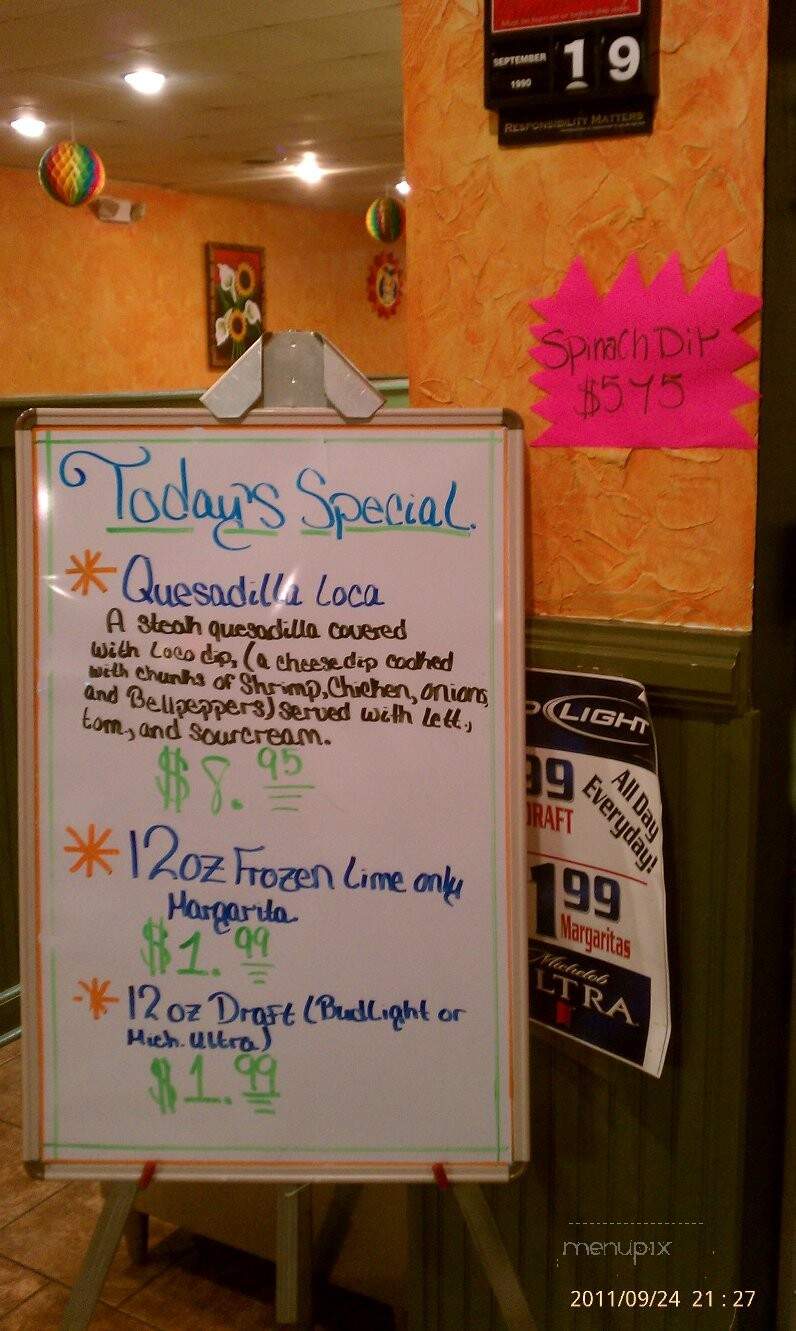 Must be born on or before this date
SEPTEMBER
1990
19
RESPONSIBILITY MATTERS
Spinach Dip
$5.75
Today's Special.
Quesadilla Loca
A steak quesadilla covered
with Loco dip, (a cheese dip cooked
with chunks of Shrimp, Chicken, onions
and Bellpeppers) served with lett.,
tom., and sourcream.
$8.95
12oz Frozen Lime only
Margarita
$1.99
12oz Draft (BudLight or
Mich. Ultra)
$1.99
D LIGHT
99
RAFT
All Day
Everyday!
1 99
Margaritas
Michelob
LTRA
menupix
2011/09/24 21:27